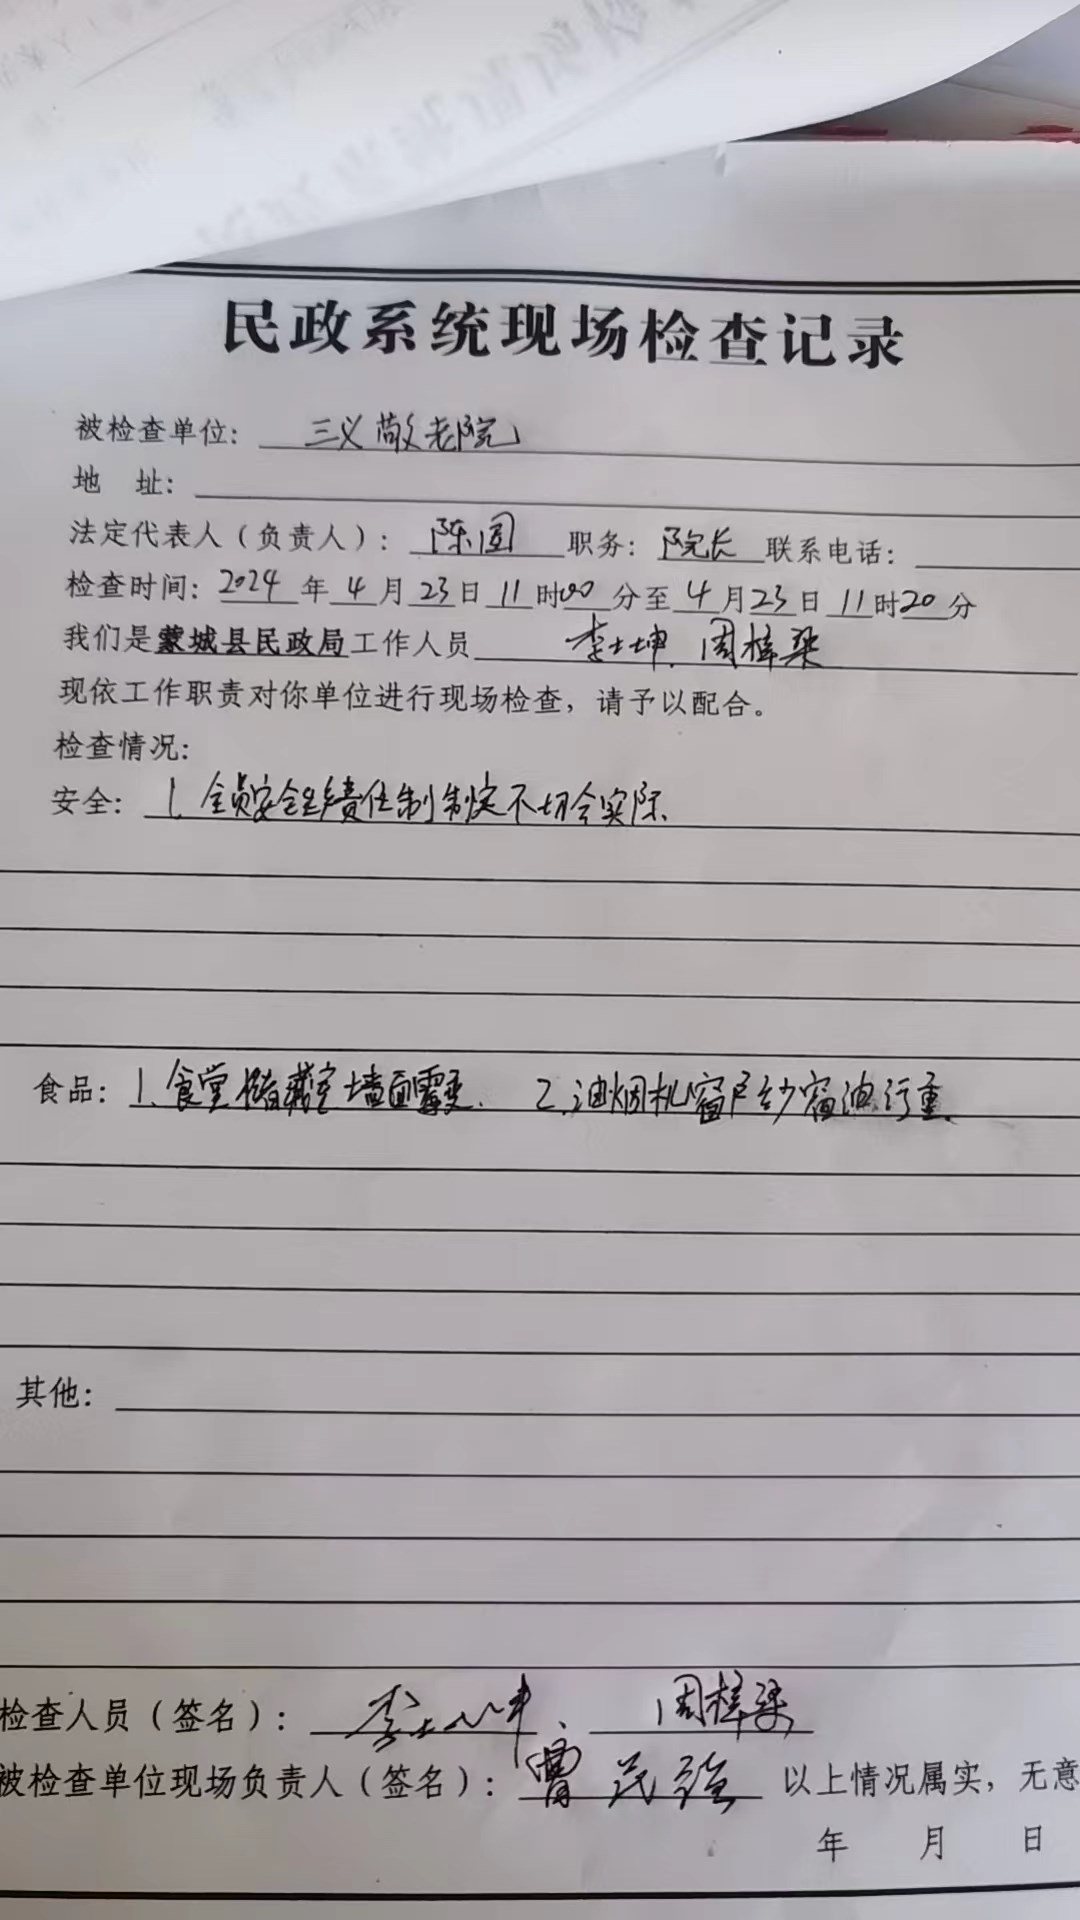 民政系统现场检查记录
被检查单位：三义敬老院
地 址：
法定代表人（负责人）：陈圆 职务：院长 联系电话：
检查时间：2024年4月23日11时00分至4月23日11时20分
我们是蒙城县民政局工作人员 李士坤、周梓梁
现依工作职责对你单位进行现场检查，请予以配合。
检查情况：
安全：1、全员安全生产责任制制定不切合实际、
食品：1、食堂储藏室墙面霉变、 2、油烟机窗户纱窗油污重、
其他：
检查人员（签名）：李士坤、周梓梁
被检查单位现场负责人（签名）：曹 民强 以上情况属实，无意
年 月 日